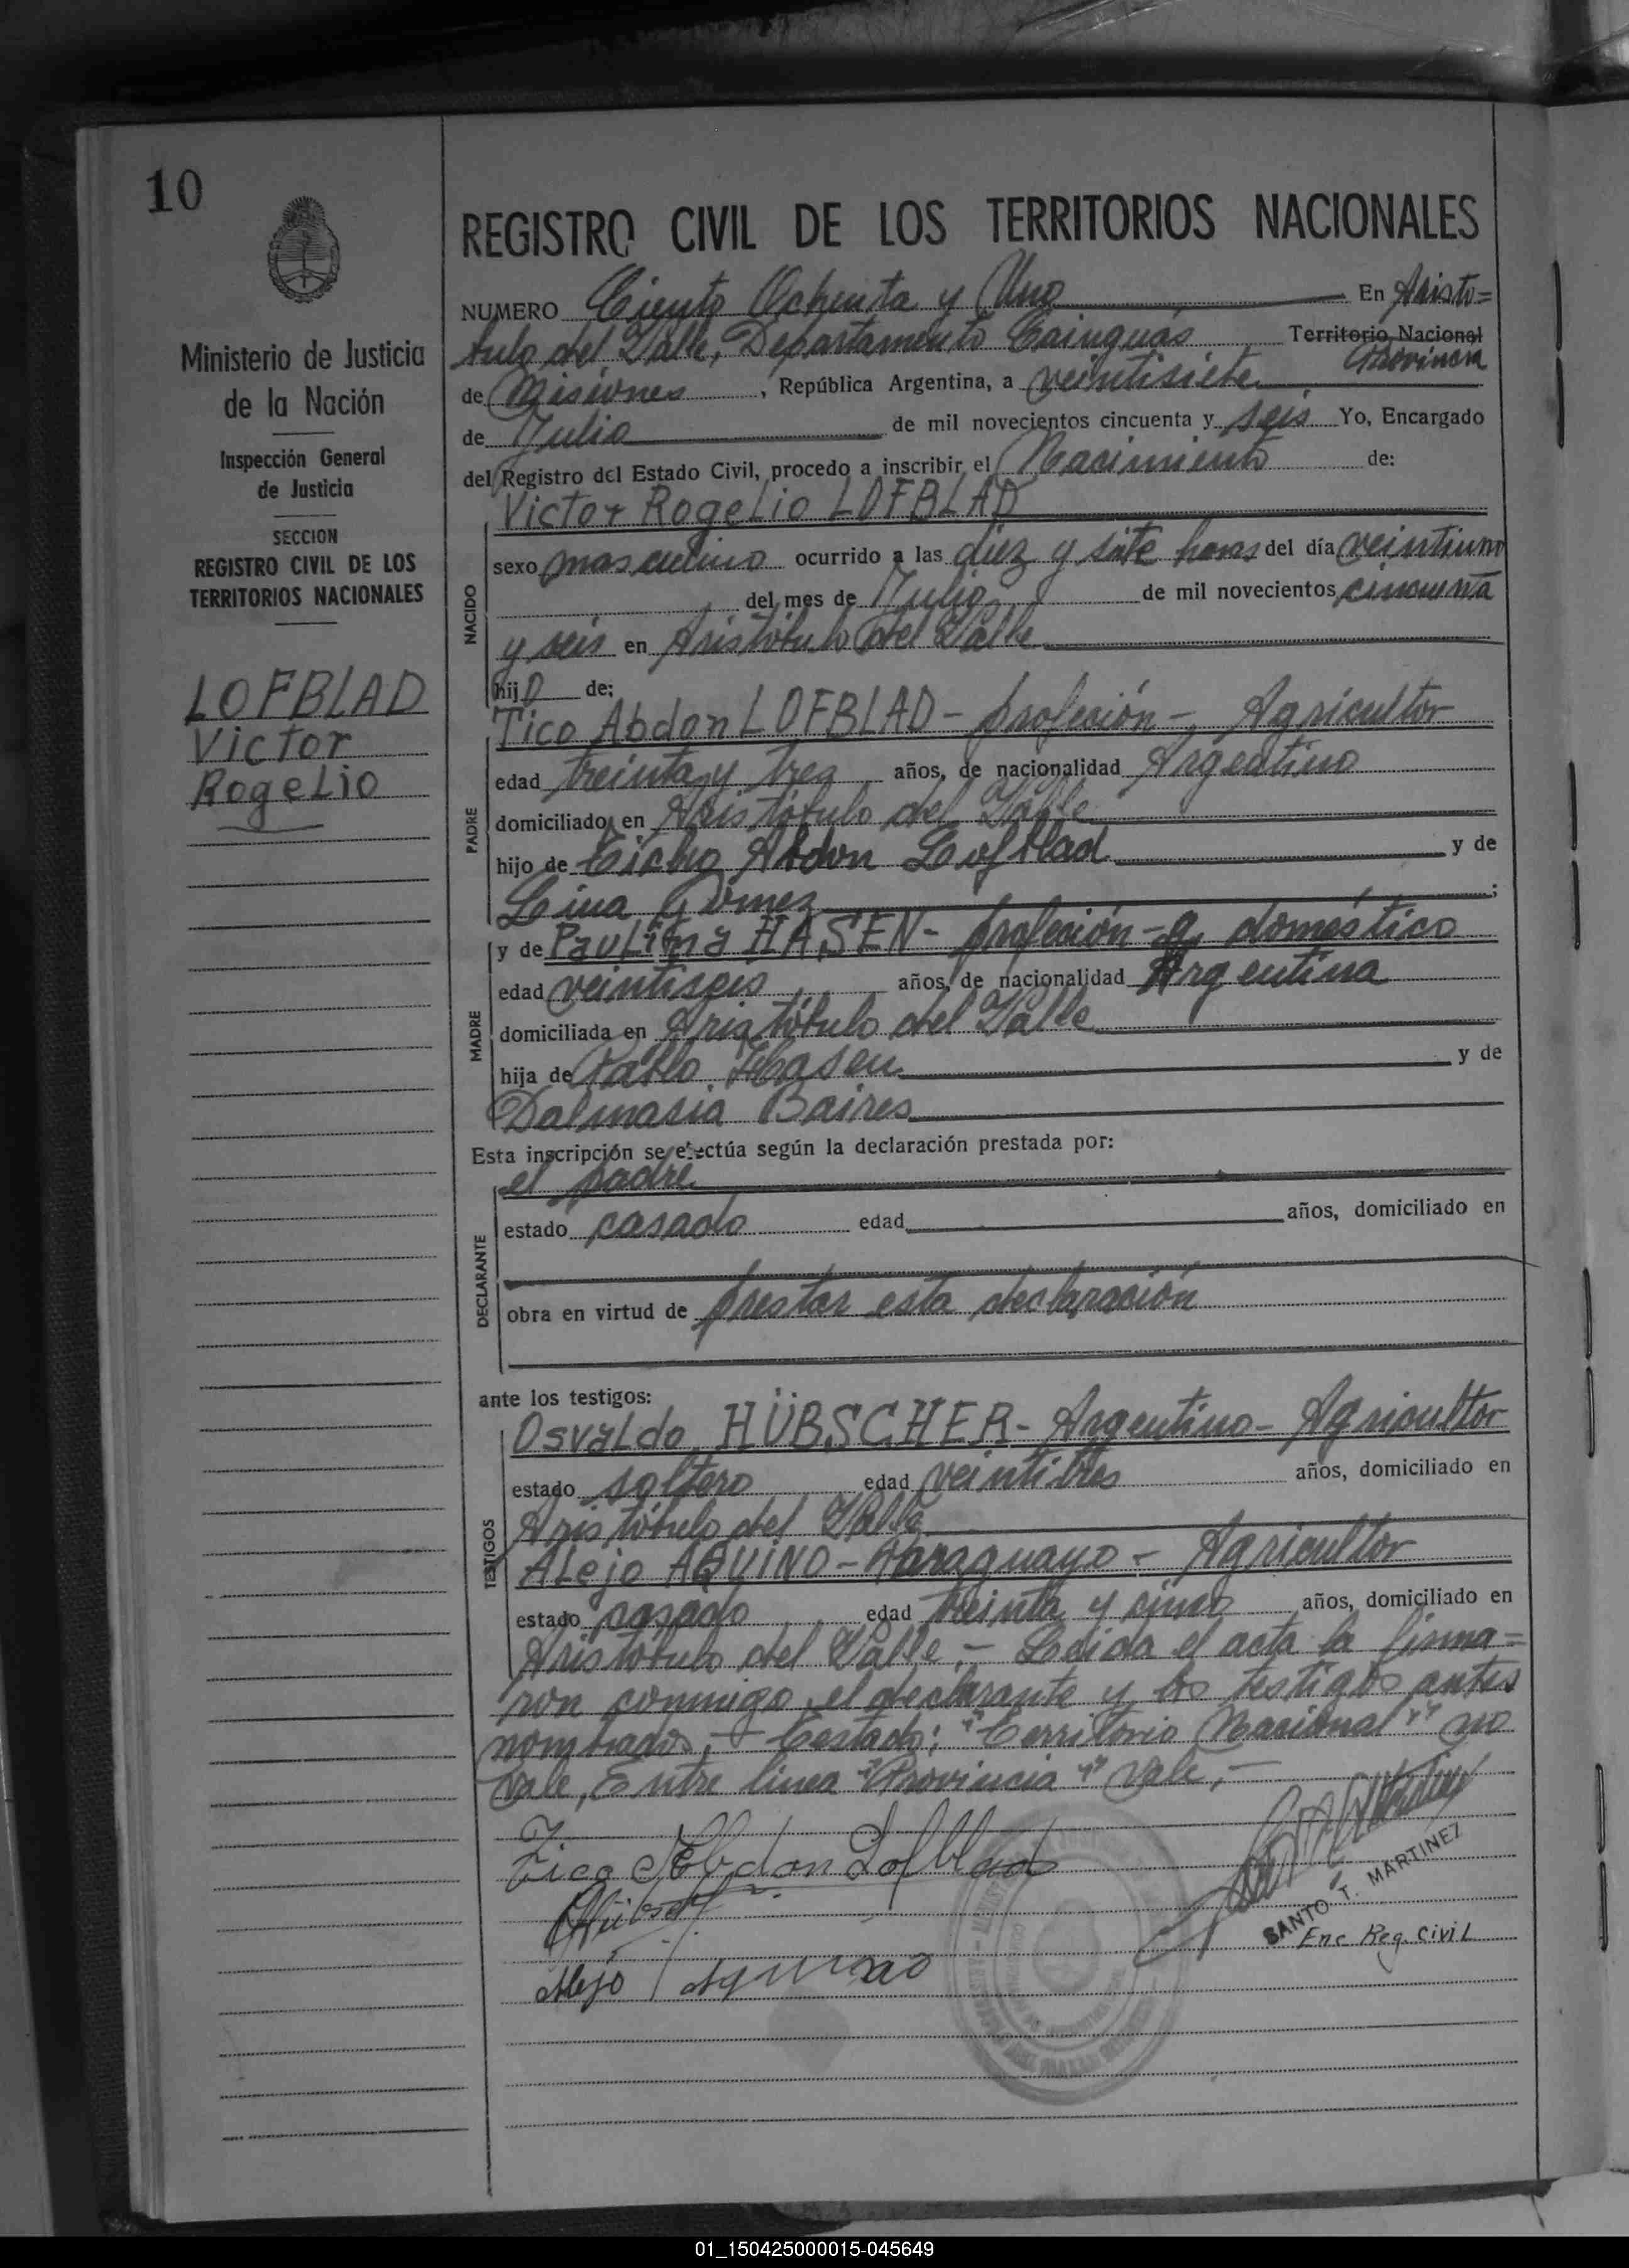 10
Ministerio de Justicia
de la Nación
Inspección General
de Justicia
SECCION
REGISTRO CIVIL DE LOS
TERRITORIOS NACIONALES
LOFBLAD
Victor
Rogelio
REGISTRO CIVIL DE LOS TERRITORIOS NACIONALES
NUMERO Ciento Ochenta y Uno En Aristo=
tulo del Valle, Departamento Cainguás Territorio Nacional
Provincia
de Misiones, República Argentina, a veintisiete
de Julio de mil novecientos cincuenta y seis Yo, Encargado
del Registro del Estado Civil, procedo a inscribir el Nacimiento de:
Victor Rogelio LOFBLAD
NACIDO
sexo masculino ocurrido a las diez y siete horas del día veintiuno
del mes de Julio de mil novecientos cincuenta
y seis en Aristóbulo del Valle
hijo de:
Tico Abdon LOFBLAD - profeción - Agricultor
PADRE
edad treinta y tres años, de nacionalidad Argentino
domiciliado en Aristóbulo del Valle
hijo de Abdon Lofblad y de
Lina Gómez;
y de Paulina HASEN - profeción - q. doméstico
MADRE
edad veintiseis años, de nacionalidad Argentina
domiciliada en Aristóbulo del Valle
hija de Pablo Hasen y de
Dalmasia Baires
Esta inscripción se efectúa según la declaración prestada por:
el padre
DECLARANTE
estado casado edad años, domiciliado en
obra en virtud de prestar esta declaración
ante los testigos:
Osvaldo HÜBSCHER - Argentino - Agricultor
TESTIGOS
estado soltero edad veintitres años, domiciliado en
Aristóbulo del Valle
Alejo AQUINO - Paraguayo - Agricultor
estado casado edad treinta y cinco años, domiciliado en
Aristóbulo del Valle. - Leida el acta la firma=
ron conmigo, el declarante y los testigos antes
nombrados. - Testado: "Territorio Nacional" no
vale, Entre linea "Provincia" vale. -
Tico Abdon Lofblad
Alejo Aquino
SANTO T. MARTINEZ
Enc Reg. Civil
01_150425000015-045649